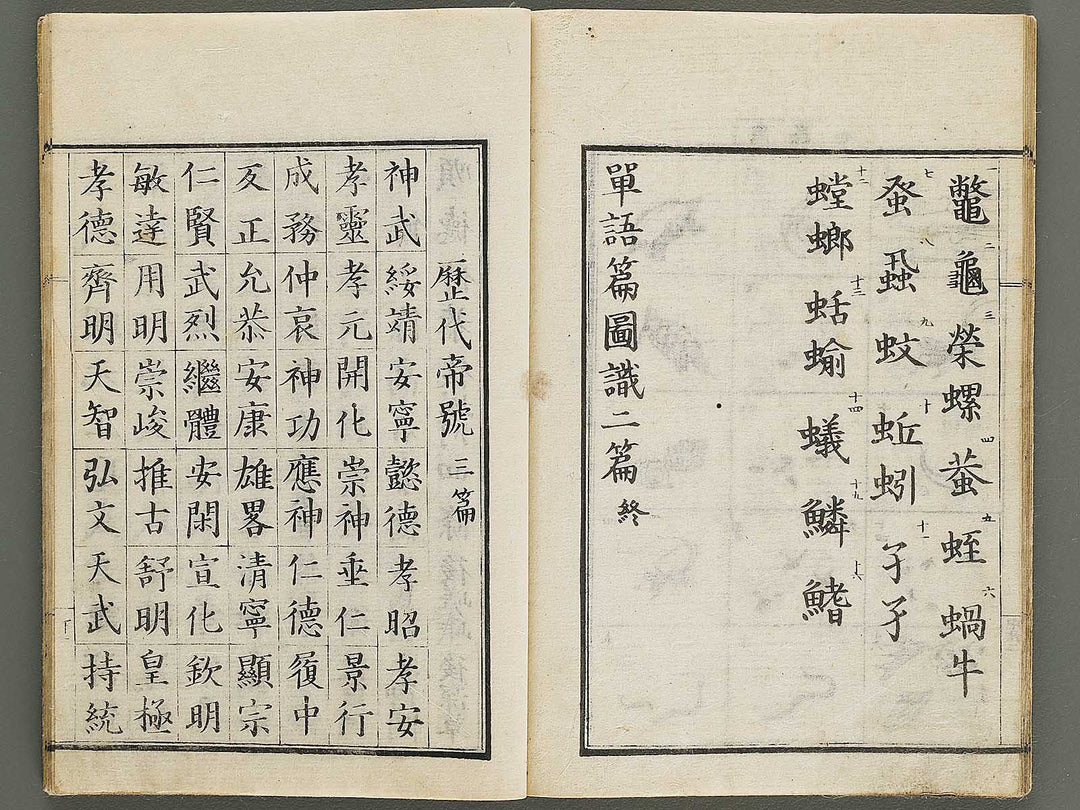 一鼈 二龜 三榮螺 四蚕 五蛭 六蝸牛
七蚤 八蝨 九蚊 十蚯蚓 十一孑孑
十二螳螂 十三蛞蝓 十四蟻 十九鱗 十六鰭
單語篇圖識二篇終
歴代帝號 三篇
神武 綏靖 安寧 懿德 孝昭 孝安
孝靈 孝元 開化 崇神 垂仁 景行
成務 仲哀 神功 應神 仁德 履中
反正 允恭 安康 雄畧 清寧 顯宗
仁賢 武烈 繼體 安閑 宣化 欽明
敏達 用明 崇峻 推古 舒明 皇極
孝德 齊明 天智 弘文 天武 持統